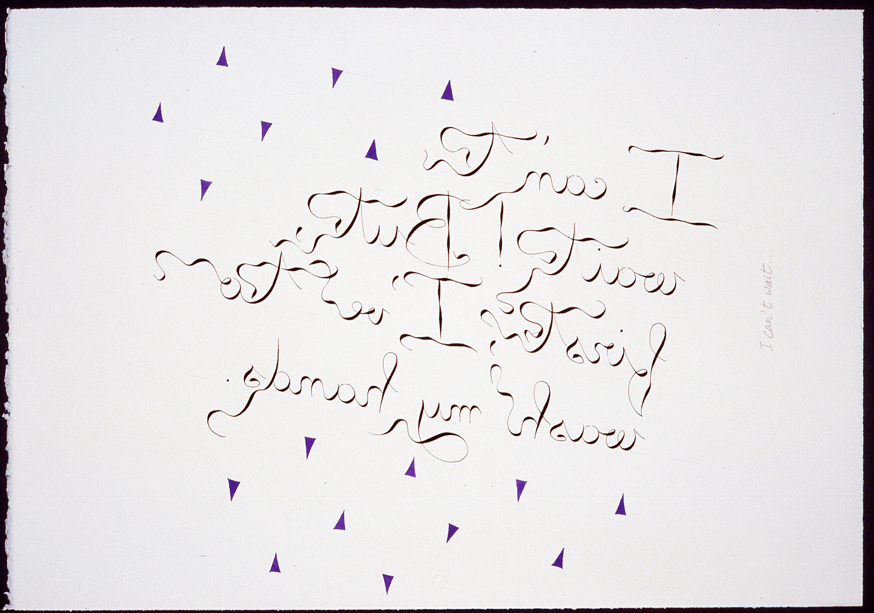 I can't
wait! But,
first, I've to
wash my hands.
I can't wait...